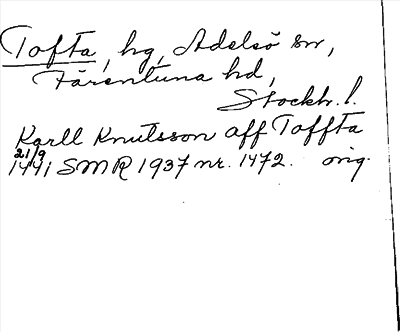 Tofta, hg, Adelsö sn,
Färentuna hd,
Stockh. l.
Karll Knutsson aff Toffta
21/9
1441 SMR 1937 nr. 1472. orig.